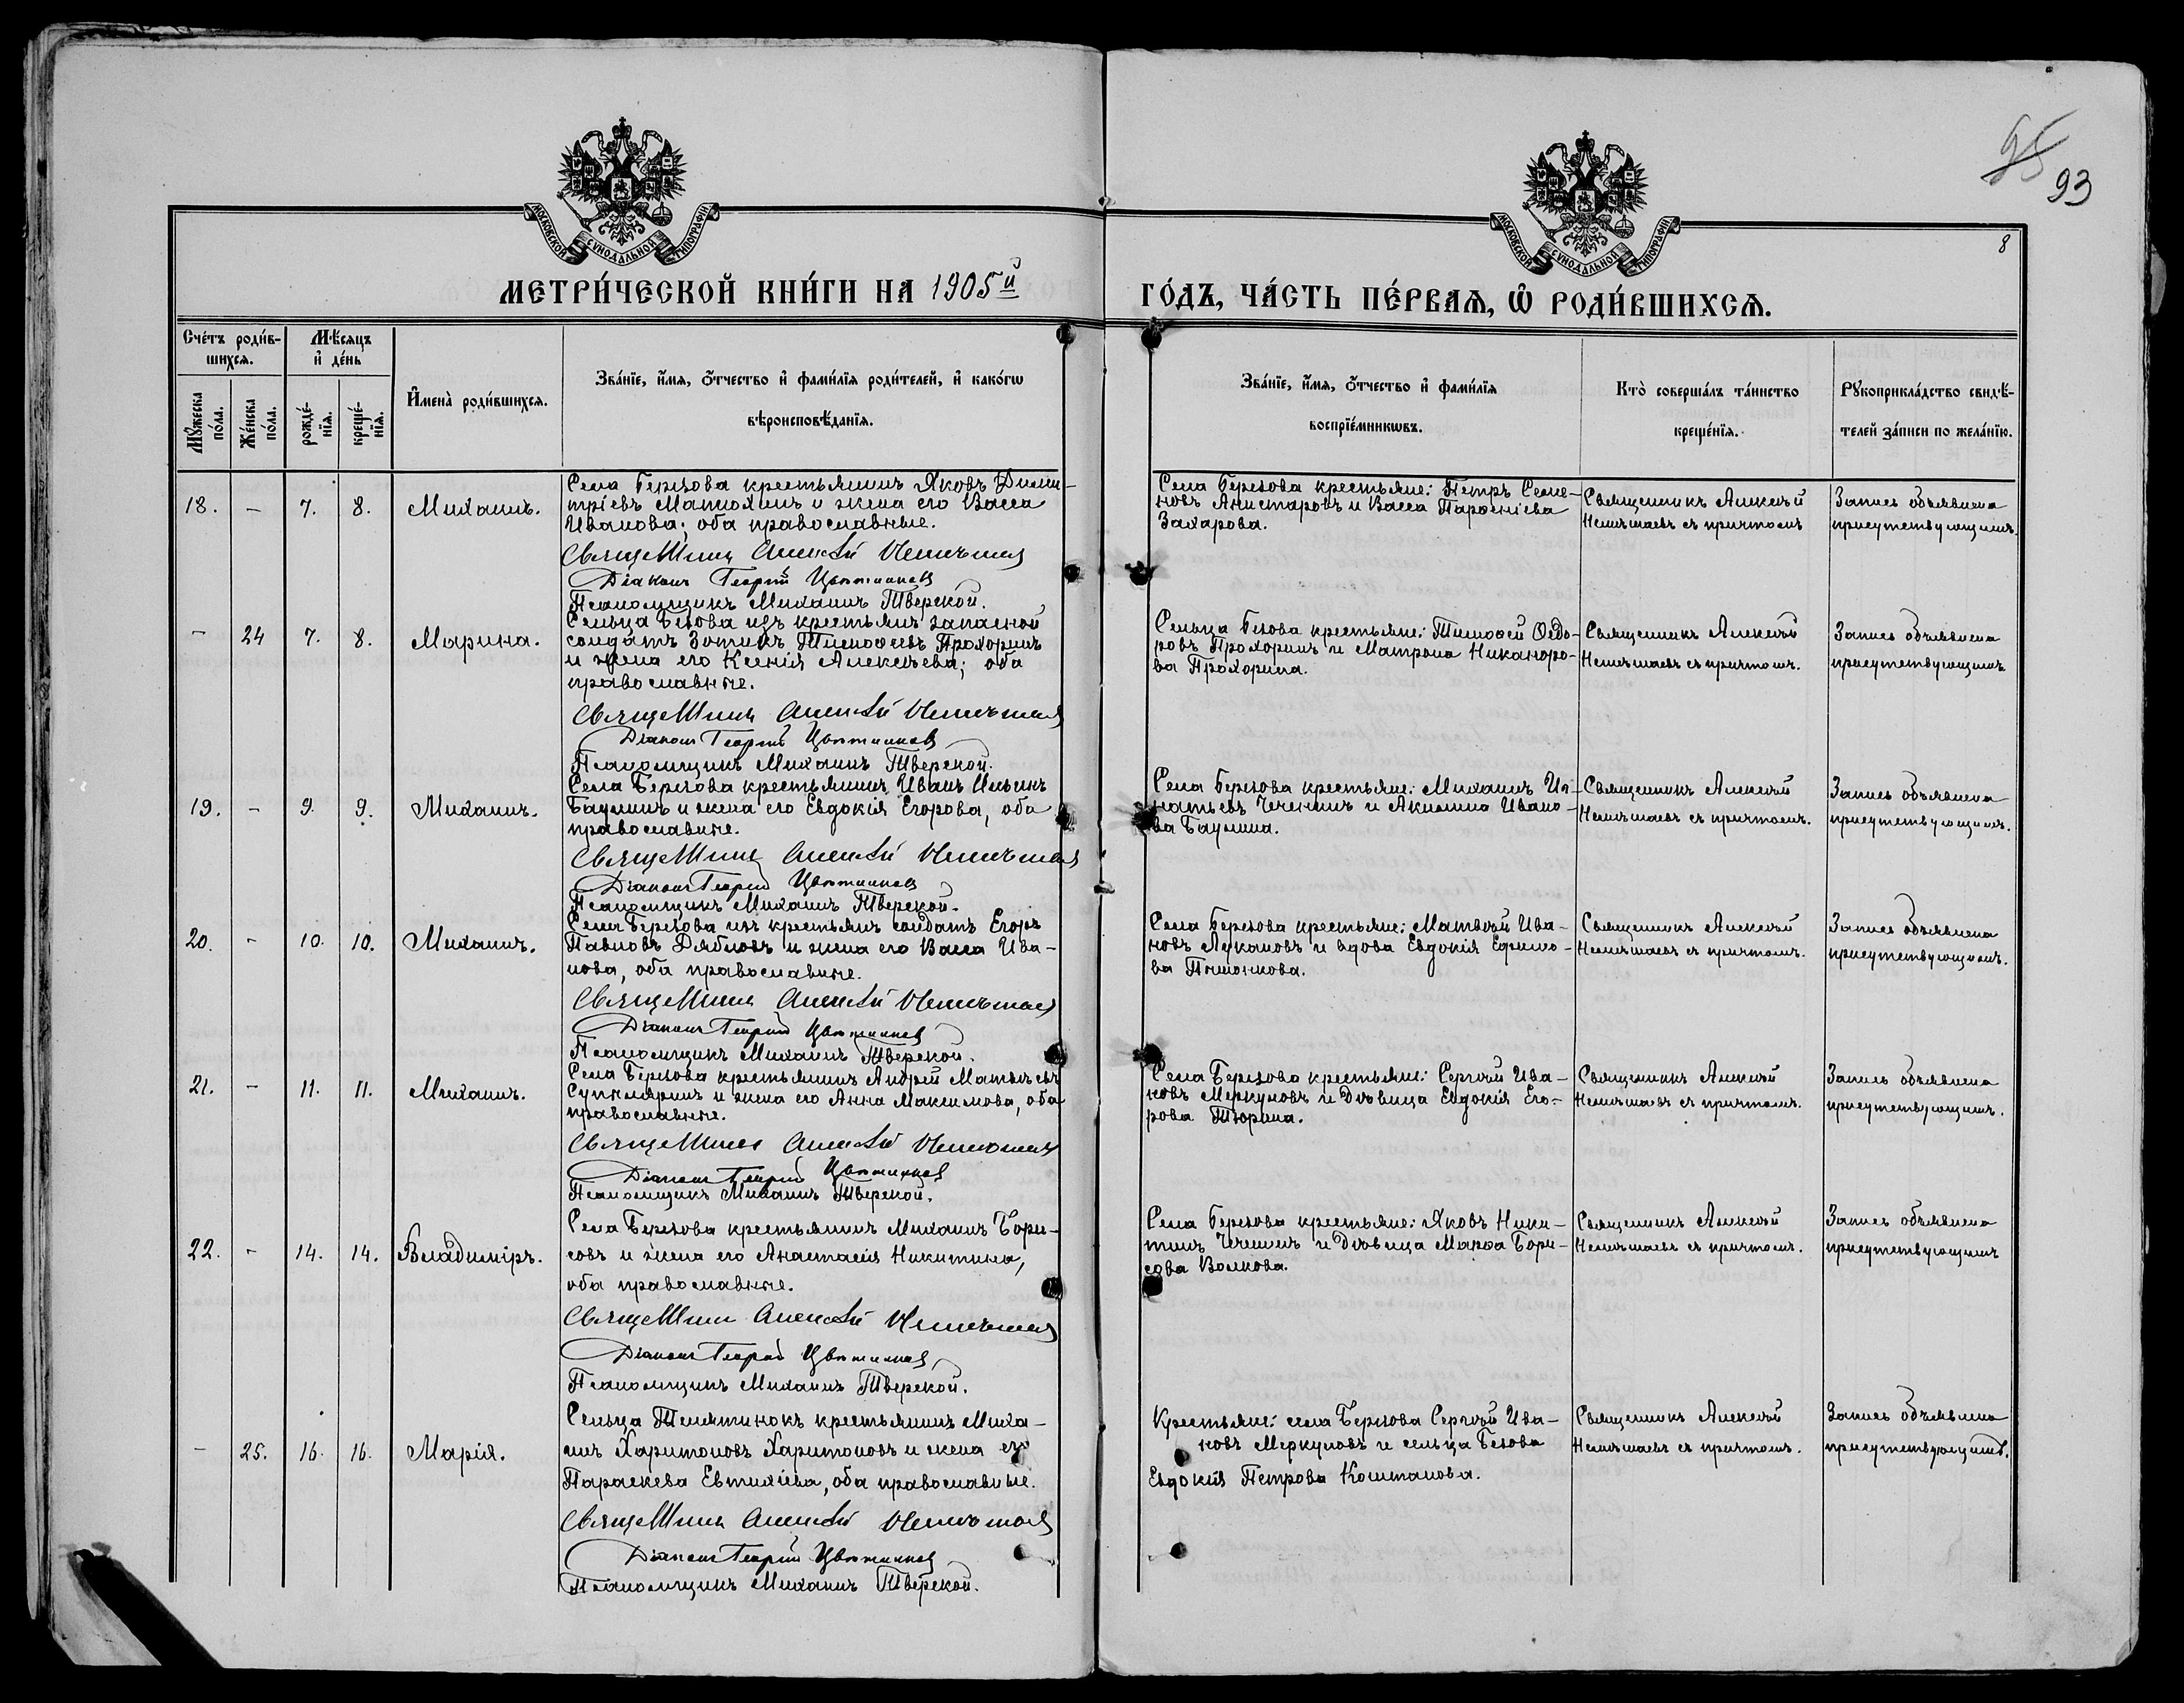 95
93
8
МОСКОВСКОЙ СѴНОДАЛЬНОЙ ТИПОГРАФІИ
МОСКОВСКОЙ СѴНОДАЛЬНОЙ ТИПОГРАФІИ
МЕТРИ́ЧЕСКОЙ КНИ́ГИ НА 1905й
ГО́ДЪ, ЧА́СТЬ ПЕ́РВАѦ, Ѡ҆ РОДИ́ВШИХСѦ.
Сче́тъ роди́в-
шихсѧ.
Мѣ́сяцъ
и҆ де́нь
Мꙋ́жеска
по́ла.
Же́нска
по́ла.
рожде́-
нїѧ.
креще́-
нїѧ.
И҆мена̀ роди́вшихсѧ.
Зва́нїе, и҆́мѧ, ѻ҆́тчество и҆ фами́лїѧ роди́телей, и҆ како́гѡ
вѣроисповѣ́данїѧ.
Зва́нїе, и҆́мѧ, ѻ҆́тчество и҆ фами́лїѧ
воспрїе́мникѡвъ.
Кто̀ соверша́лъ та́инство
креще́нїѧ.
Рꙋкоприкла́дство свидѣ́-
телей за́писи по жела́нїю.
18. - 7. 8. Михаилъ.
Села Березова крестьянинъ Яковъ Дими-
тріевъ Матюхинъ и жена его Васса
Иванова; оба православные.
Священникъ Алексѣй Немѣшаев
Діаконъ Георгій Цвѣтиков
Псаломщикъ Михаилъ Тверской.
Села Березова крестьяне: Петръ Семе-
новъ Анистаровъ и Васса Парѳеніева
Захарова.
Священникъ Алексѣй
Немѣшаевъ съ причтомъ
Запись объявлена
присутствующимъ.
- 24 7. 8. Марина.
Сельца Безова изъ крестьянъ запасной
солдатъ Зотикъ Тимоѳеевъ Прохоринъ
и жена его Ксенія Алексѣева; оба
православные.
Священникъ Алексѣй Немѣшаев
Діаконъ Георгій Цвѣтиков
Псаломщикъ Михаилъ Тверской.
Сельца Безова крестьяне: Тимоѳей Ѳедо-
ровъ Прохоринъ и Матрона Никаноро-
ва Прохорина.
Священникъ Алексѣй
Немѣшаевъ съ причтомъ.
Запись объявлена
присутствующимъ
19. - 9. 9. Михаилъ.
Села Березова крестьянинъ Иванъ Ильинъ
Баулинъ и жена его Евдокія Егорова, оба
православные.
Священникъ Алексѣй Немѣшаев
Діаконъ Георгій Цвѣтиков
Псаломщикъ Михаилъ Тверской.
Села Березова крестьяне: Михаилъ Иг-
натьевъ Чечинъ и Акилина Ивано-
ва Баулина.
Священникъ Алексѣй
Немѣшаевъ съ причтомъ.
Запись объявлена
присутствующимъ.
20. - 10. 10. Михаилъ.
Села Березова изъ крестьянъ солдатъ Егоръ
Павловъ Дябловъ и жена его Васса Ива-
нова, оба православные.
Священникъ Алексѣй Немѣшаев
Діаконъ Георгій Цвѣтиков
Псаломщикъ Михаилъ Тверской.
Села Березова крестьяне: Матвѣй Ива-
новъ Лукановъ и вдова Евдокія Ефимо-
ва
Священникъ Алексѣй
Немѣшаевъ съ причтомъ.
Запись объявлена
присутствующимъ.
21. - 11. 11. Михаилъ.
Села Березова крестьянинъ Андрей Матвѣевъ
и жена его Анна Максимова, оба
православные.
Священникъ Алексѣй Немѣшаев
Діаконъ Георгій Цвѣтиков
Псаломщикъ Михаилъ Тверской.
Села Березова крестьяне: Сергѣй Ива-
новъ Меркуловъ и дѣвица Евдокія Его-
рова Тюрина.
Священникъ Алексѣй
Немѣшаевъ съ причтомъ.
Запись объявлена
присутствующимъ.
22. - 14. 14. Владиміръ.
Села Березова крестьянинъ Михаилъ Бори-
совъ и жена его Анастасія Никитина,
оба православные.
Священникъ Алексѣй Немѣшаев
Діаконъ Георгій Цвѣтиков
Псаломщикъ Михаилъ Тверской.
Села Березова крестьяне: Яковъ Ники-
тинъ Чечинъ и дѣвица Марѳа Бори-
сова Волкова.
Священникъ Алексѣй
Немѣшаевъ съ причтомъ.
Запись объявлена
присутствующимъ
- 25. 16. 16. Марія.
Сельца Телятинокъ крестьянинъ Миха-
илъ Харитоновъ Харитоновъ и жена его
Параскева Евтихіева, оба православные.
Священникъ Алексѣй Немѣшаев
Діаконъ Георгій Цвѣтиков
Псаломщикъ Михаилъ Тверской.
Крестьяне: села Березова Сергѣй Ива-
новъ Меркуловъ и сельца Безова
Евдокія Петрова Коштанова.
Священникъ Алексѣй
Немѣшаевъ съ причтомъ.
Запись объявлена
присутствующимъ.